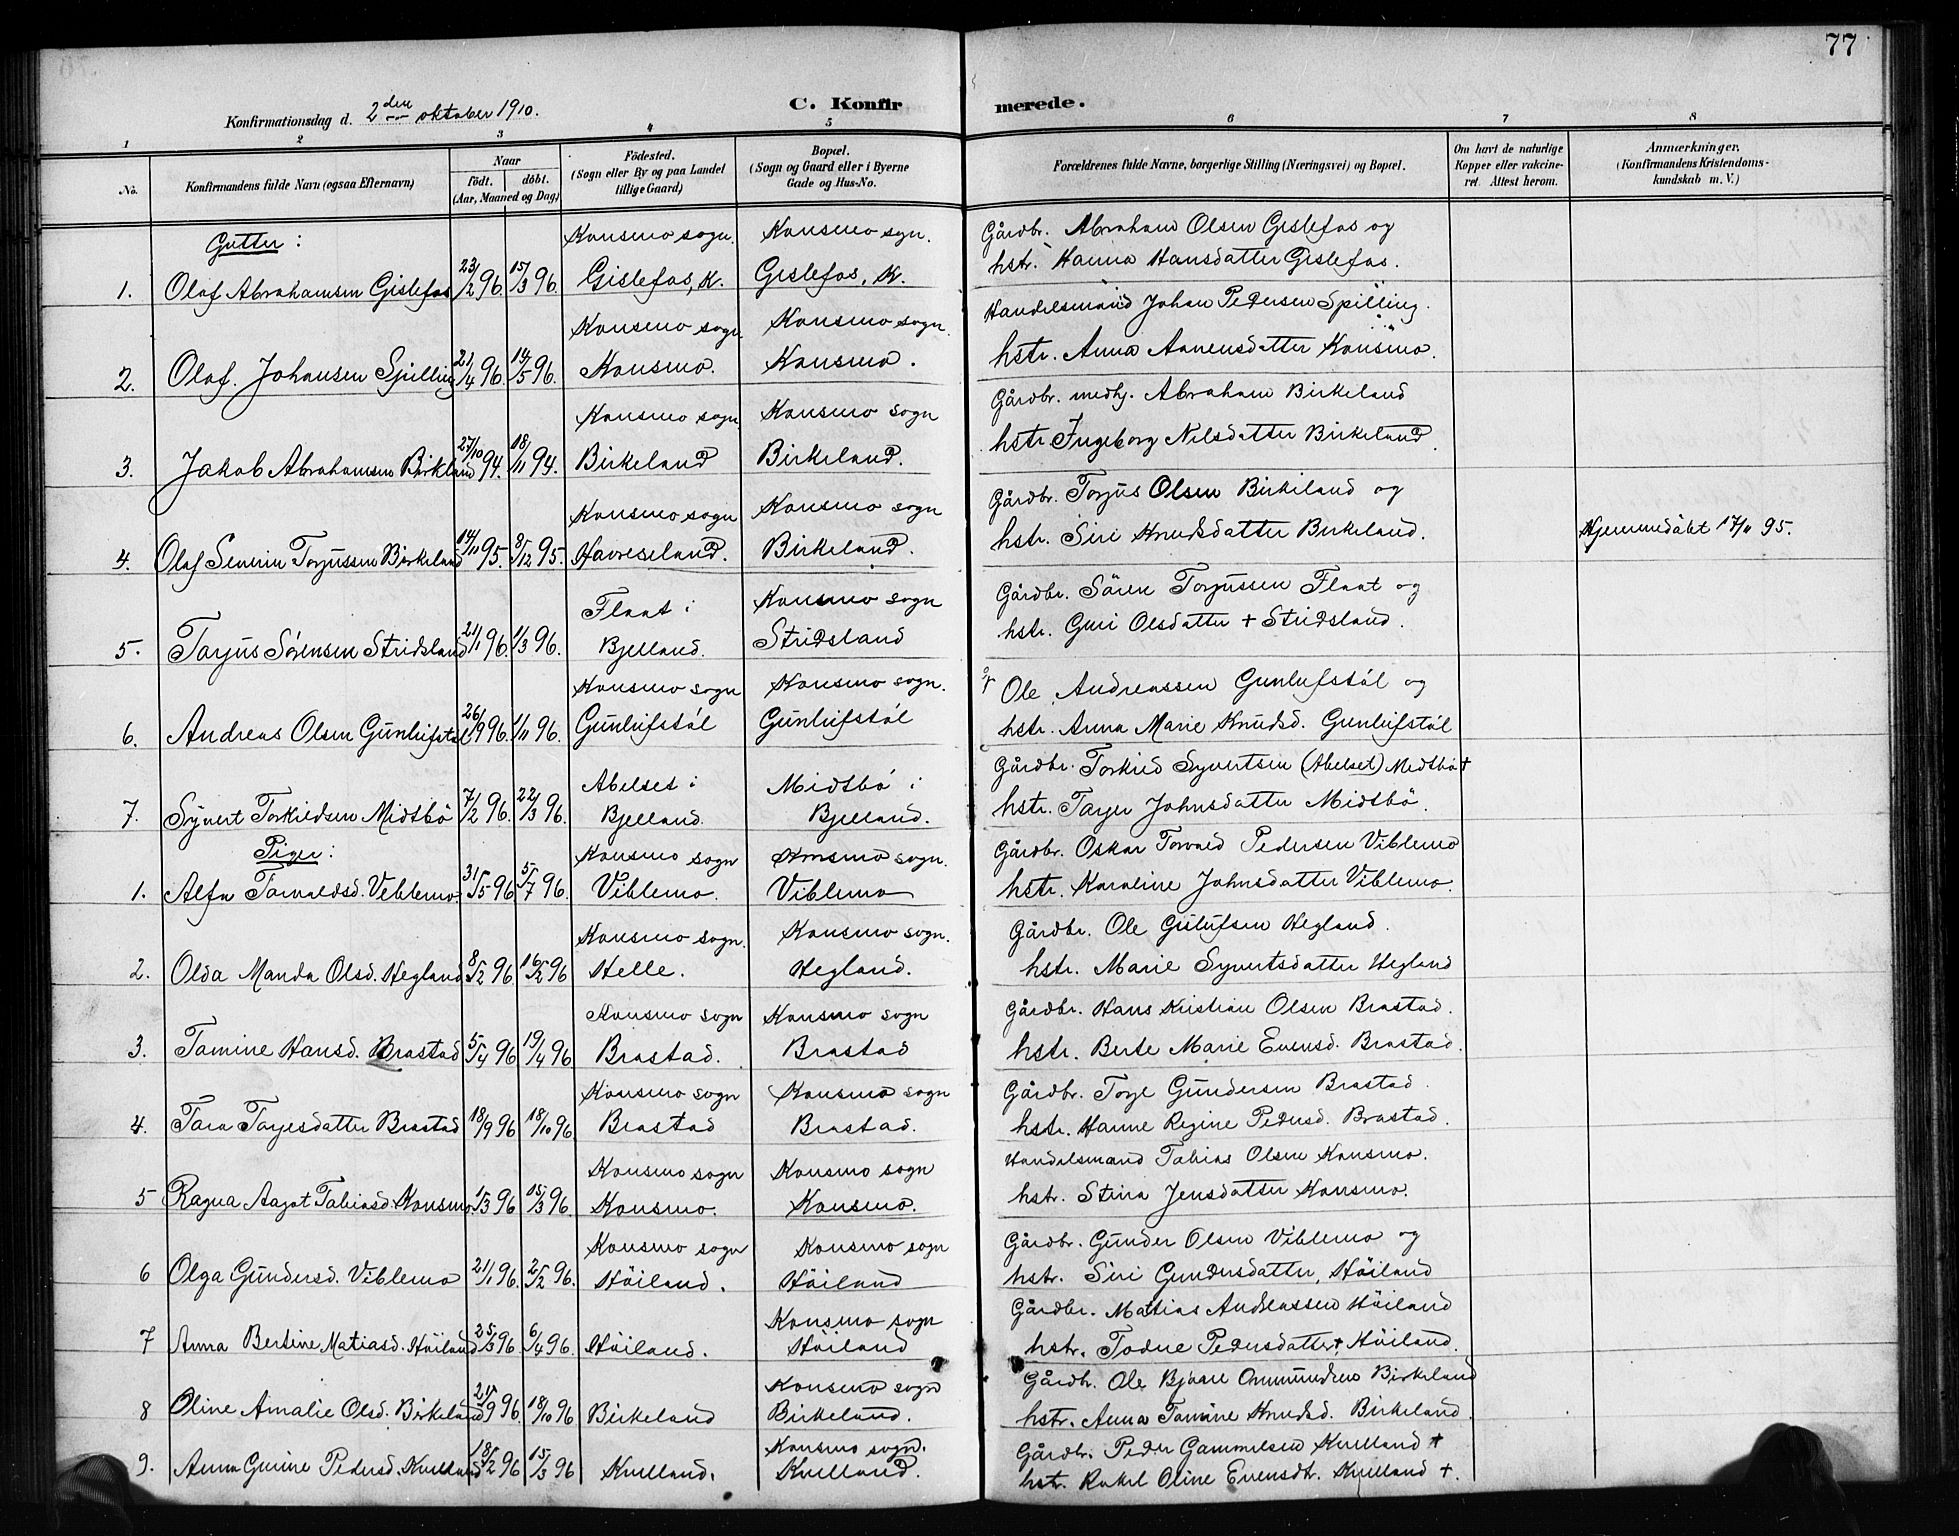 77
C. Konfirmerede.
Konfirmationsdag d. 2den oktober 1910.
1 2 3 4 5 6 7 8
No. Konfirmandens fulde Navn (ogsaa Efternavn) Naar födt. döbt. (Aar, Maaned og Dag) Födested. (Sogn eller By og paa Landet tillige Gaard) Bopæl. (Sogn og Gaard eller i Byerne Gade og Hus-No. Forældrenes fulde Navne, borgerlige Stilling (Næringsvei) og Bopæl. Om havt de naturlige Kopper eller vakcineret. Attest herom. Anmærkninger. (Konfirmandens Kristendomskundskab m. V.)
Gutter:
Konsmo sogn. Konsmo sogn. Gårdbr. Abraham Olsen Gislefos og
1. Olaf Abrahamsen Gislefos 23/2 96. 15/3 96. Gislefos, K. Gislefos, K. hstr. Hanna Hansdatter Gislefos.
Konsmo sogn. Konsmo sogn. Handelsmand Johan Pedersen Spilling.
2. Olaf Johansen Spilling 21/4 96. 14/5 96. Konsmo. Konsmo. hstr. Anna Aanensdatter Konsmo.
Konsmo sogn. Konsmo sogn Gårdbr. medhj. Abraham Birkeland
3. Jakob Abrahamsen Birkland 27/10 94. 18/11 94. Birkeland Birkeland. hstr. Ingeborg Nilsdatter Birkeland.
Konsmo sogn Konsmo sogn Gårdbr. Torjus Olsen Birkeland og
4. Olaf Severin Torjussen Birkeland 14/11 95. 8/12 95. Havreseland. Birkeland. hstr. Siri Knudsdatter Birkeland. Hjemmedöbt 17/11 95.
Flaat i Konsmo sogn Gårdbr. Sören Torjussen Flaat og
5. Torjus Sörensen Stridsland 21/1 96. 1/3 96. Bjelland. Stridsland hstr. Guri Olsdatter + Stridsland.
Konsmo sogn Konsmo sogn. Ole Andreassen Gunlufstöl og
6. Andreas Olsen Gunlufstöl 26/9 96. 1/11 96. Gunlufstöl Gunlufstöl hstr. Anna Marie Knudsd. Gunlufstöl
Abelset i Midtbö i Gårdbr. Torkild Syvertsen (Abelset) Midtbö +
7. Syvert Torkildsen Midtbö 7/2 96. 22/3 96. Bjelland. Bjelland. hstr. Torjer Johnsdatter Midtbö.
Piger:
Konsmo sogn Konsmo sogn. Gårdbr. Oskar Torvald Pedersen Viblemo
1. Alfa Torvaldsd. Viblemo 31/5 96 5/7 96. Viblemo. Viblemo hstr. Karoline Johnsdatter Viblemo.
Konsmo sogn. Konsmo sogn. Gårdbr. Ole Gislufsen Hegland.
2. Olda Manda Olsd. Hegland 8/2 96. 16/2 96 Helle. Hegland. hstr. Marie Syvertsdatter Hegland
Konsmo sogn Konsmo sogn Gårdbr. Hans Kristian Olsen Brastad.
3. Tomine Hansd. Brastad 5/4 96 19/4 96 Brastad. Brastad hstr. Berte Marie Evensd. Brastad.
Konsmo sogn Konsmo sogn Gårdbr. Torje Gundersen Brastad.
4. Tora Torjesdatter Brastad 18/9 96 18/10 96. Brastad Brastad. hstr. Hanne Regine Pedersd. Brastad.
Konsmo sogn Konsmo sogn Handelsmand Tobias Olsen Konsmo.
5 Ragna Aagot Tobiasd. Konsmo 1/3 96 15/3 96. Konsmo. Konsmo. hstr. Stina Jensdatter Konsmo.
Konsmo sogn Konsmo sogn Gårdbr. Gunder Olsen Viblemo og
6 Olga Gundersd. Viblemo 21/1 96. 2/2 96. Höiland. Höiland hstr. Siri Gundersdatter, Höiland
Konsmo sogn Gårdbr. Matias Andreassen Höiland
7 Anna Bertine Matiasd. Höiland 25/3 96 6/4 96. Höiland. Höiland hstr. Todne Pedersdatter +, Höiland.
Konsmo sogn Gårdbr. Ole Bjaare Ommundsen Birkeland
8 Oline Amalie Olsd. Birkeland 21/9 96. 18/10 96 Birkeland Birkeland. hstr. Anna Tomine Knudsd. Birkeland
Konsmo sogn. Gårdbr. Peder Gammelsen Kvelland +
9. Anna Gurine Pedersd. Kvelland 18/2 96 15/3 96 Kvelland. Kvelland. hstr. Rakel Oline Evensdtr. Kvelland +.